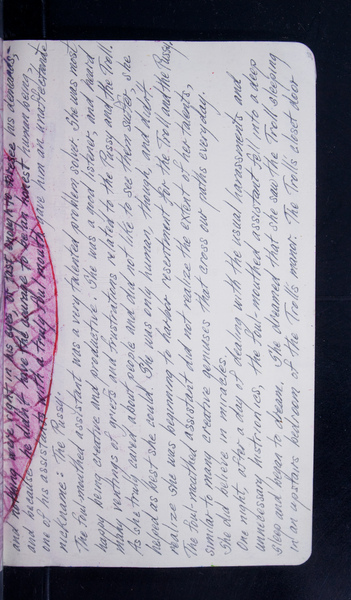 and because he didn't have the courage to be an honest human being,
one of his assistants with a truly foul mouth gave him an unaffectionate
nickname: The Pussy.
The foul-mouthed assistant was a very talented problem solver. She was most
happy being creative and productive. She was a good listener, and heard
many ventings of griefs and frustrations related to the Pussy and the Troll.
As she truly cared about people and did not like to see them suffer, she
helped as best she could. She was only human, though, and didn't
realize she was beginning to harbor resentment for the Troll and the Pussy.
The foul-mouthed assistant did not realize the extent of her talents,
similar to many creative geniuses that cross our paths everyday.
She did believe in miracles.
One night, after a day of dealing with the usual harassments and
unnecessary histrionics, the foul-mouthed assistant fell into a deep
sleep and began to dream. She dreamed that she saw the Troll sleeping
in an upstairs bedroom of the Troll's manor. The Troll's closet door